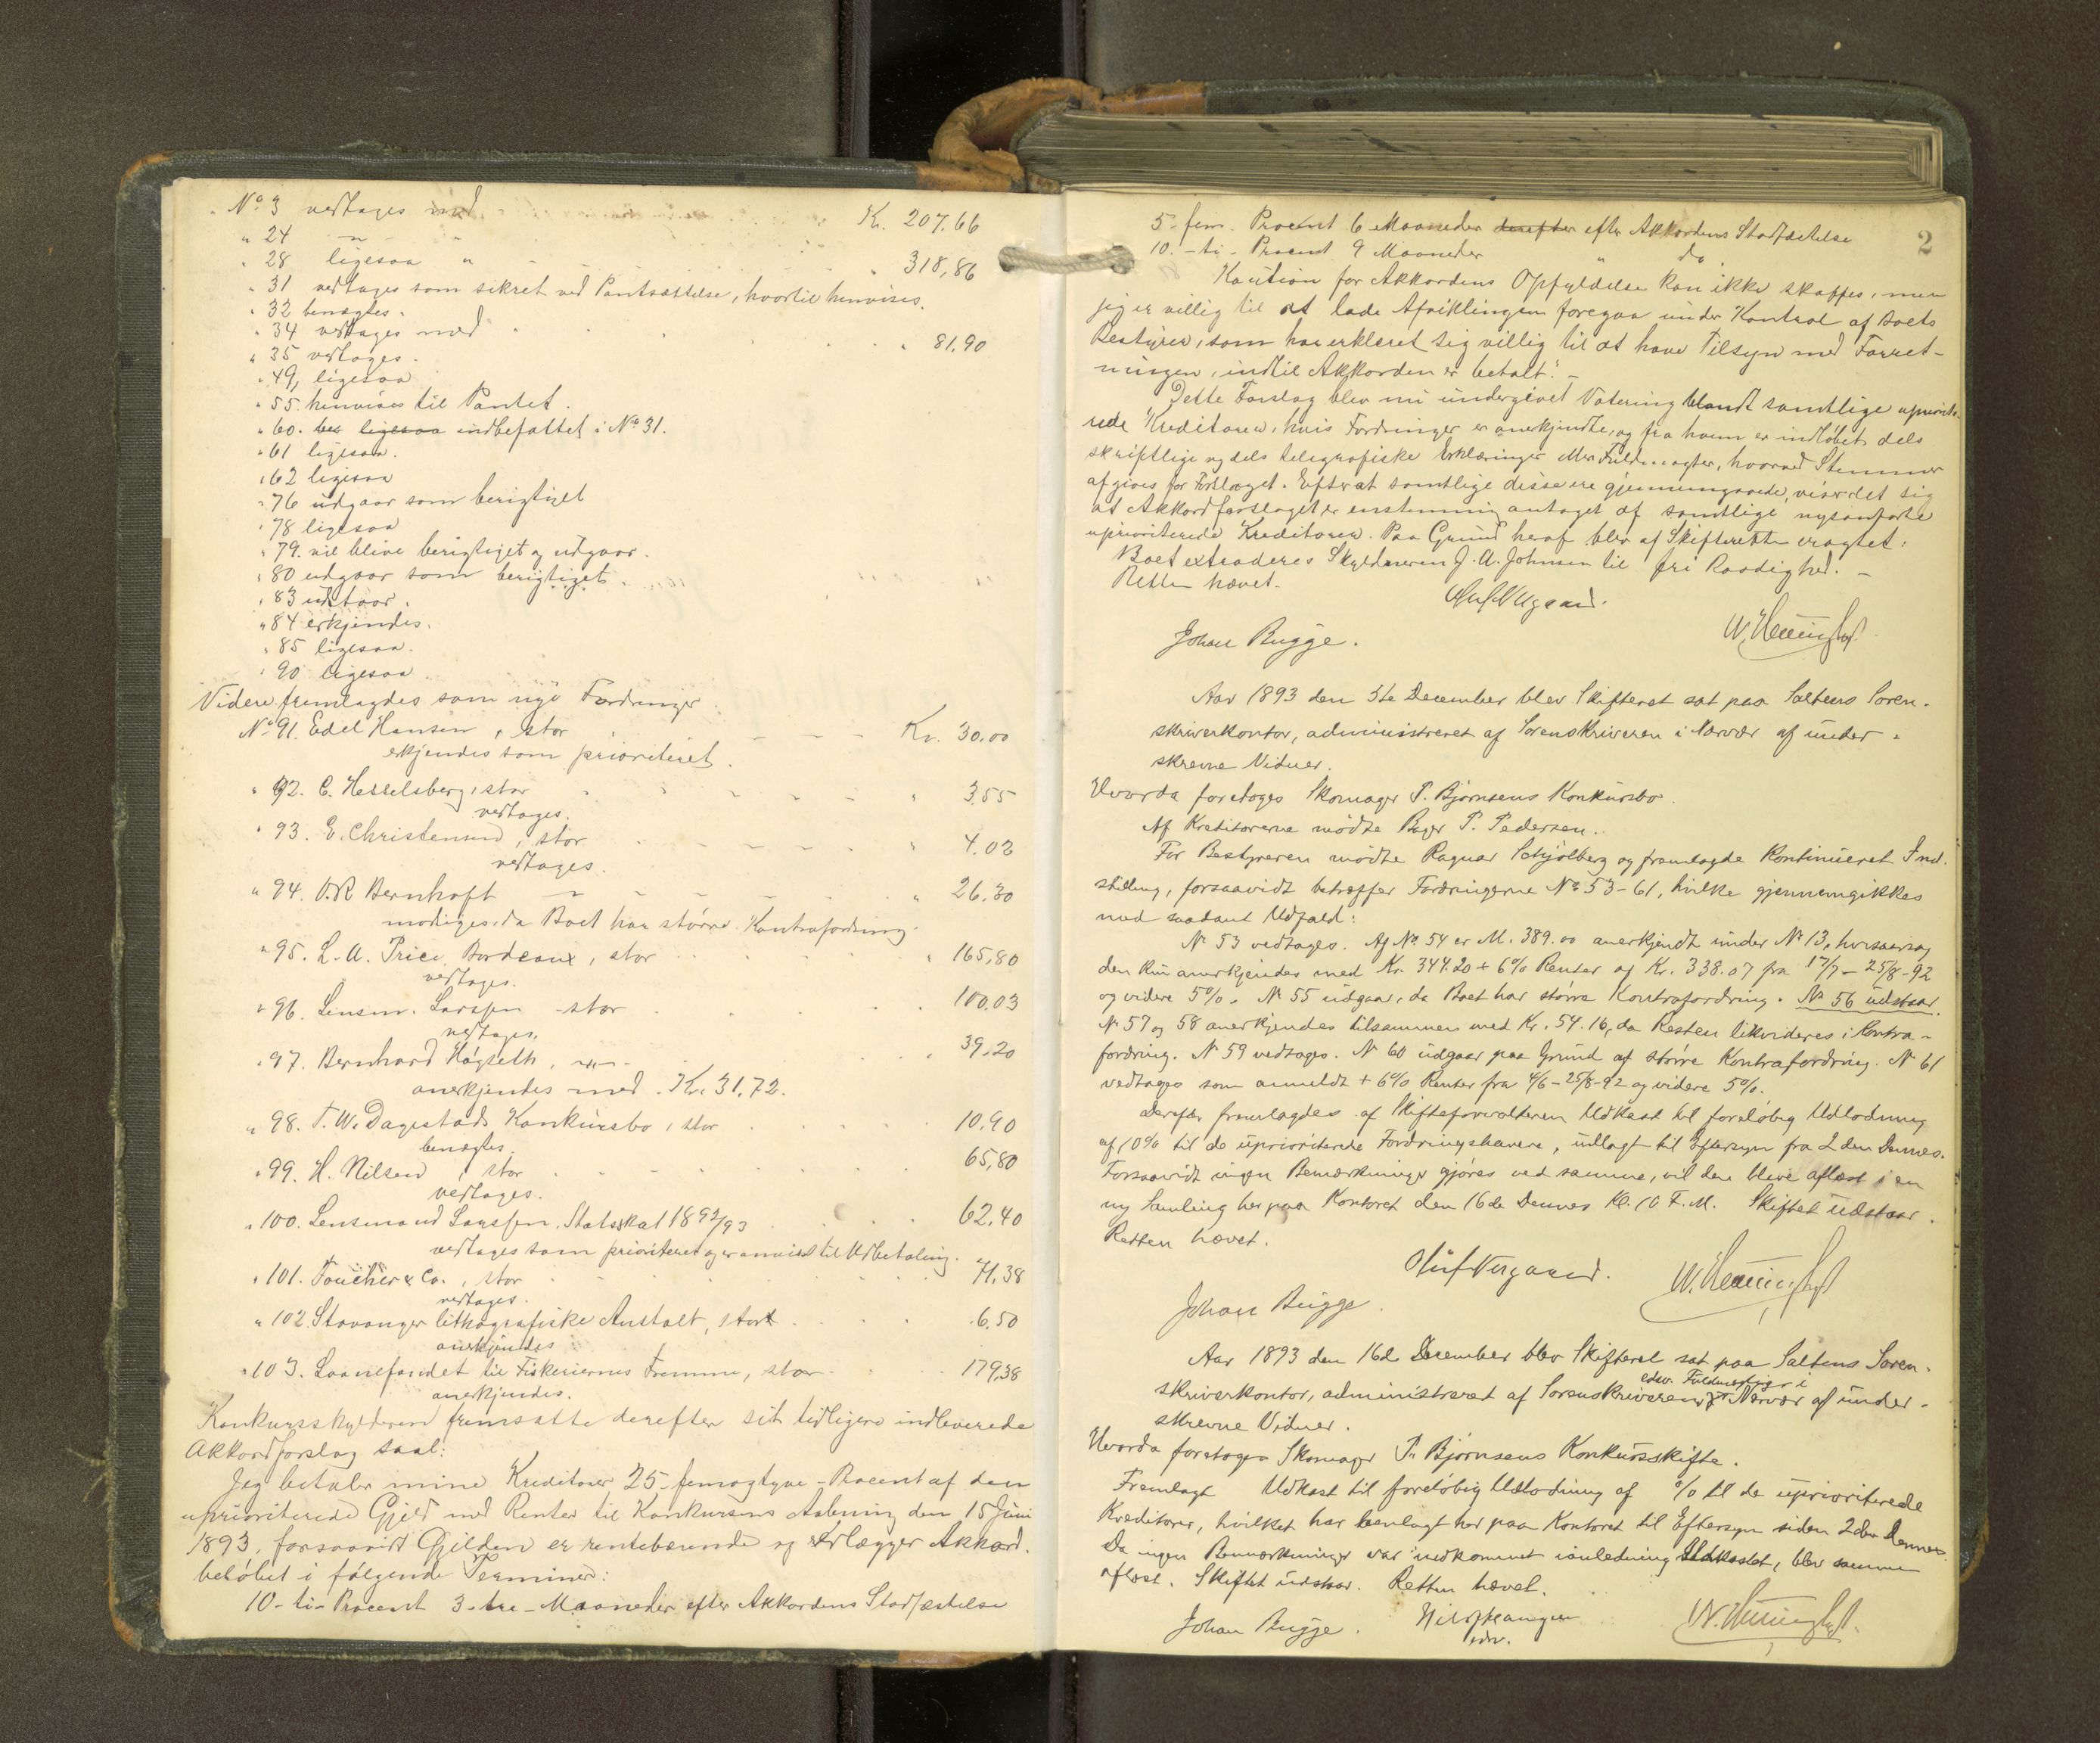 No 3 vedtages med Kr. 207,66
" 24 -"-
" 28 ligesaa " " 318,86
" 31 vedtages som sikret ved Pantsættelse, hvortil henvises.
" 32 benægtes.
" 34 vedtages med " 81,90
" 35 vedtages.
" 49, ligesaa
" 55. henvises til Pantet.
" 60. bes ligesaa indbefattet i No 31.
" 61 ligesaa.
" 62 ligesaa
" 76 udgaar som berigtiget
" 78 ligesaa
" 79. vil blive berigtiget og udgaar.
" 80 udgaar som berigtiget.
" 83 udstaar.
" 84 erkjendes.
" 85 ligesaa.
" 90 ligesaa
Videre fremlagdes som nye Fordringer
No 91. Edel Hansen, stor Kr. 30.00
erkjendes som prioriteret.
" 92. C. Hesselsberg, stor " 3,55
vedtages.
" 93. E. Christensen, stor " 4.02
vedtages.
" 94. O.R Bernhoft " 26,30
modsiges, da Boet har større Kontrafordring.
" 95. L. A. Price Bordeaux, stor " 165,80
vedtages.
" 96. Lensm. Larssen stor 100.03
vedtages.
" 97. Bernhard Høgseth, -"- " 39,20
anerkjendes med Kr. 31,72.
" 98. T. W. Dagestads Konkursbo, stor 10,90
benægtes
" 99. H. Nilsen, stor 65,80
vedtages.
" 100. Lensmand Larssen, Statsskat 1892/93 62,40
vedtages som prioriteret og er anvist til Udbetaling.
" 101. Foucher & Co., stor 71,38
vedtages.
" 102. Stavanger lithografiske Anstalt, stor 6.50
anerkjendes
" 103. Laanefondet til Fiskeriernes Fremme, stor 179,38
anerkjendes.
Konkursskyldneren fremsatte derefter sit tidligere indleverede
Akkordforslag saal:
Jeg betaler mine Kreditorer 25-femogtyve-Procent af den
uprioriterede Gjeld med Renter til Konkursens Aabning den 15 Juni
1893, forsaavidt Gjælden er rentebærende og erlægger Akkord-
beløbet i følgende Terminer:
10-ti-Procent 3-tre-Maaneder efter Akkordens Stadfæstelse
2
5-fem-Procent 6 Maaneder derefter efter Akkordens Stadfæstelse
10-ti-Procent 9 Maaneder " do
Kaution for Akkordens Opfyldelse kan ikke skaffes, men
jeg er villig til at lade Afviklingen foregaa under Kontrol af Boets
Bestyrer, som har erklæret sig villig til at have Tilsyn med Forret-
ningen, indtil Akkorden er betalt." -
Dette Forslag blev nu undergivet Votering blandt samtlige upriorite-
rede Kreditorer, hvis Fordringer er anerkjendte, og fra hvem er indløbet dels
skriftlige og dels telegrafiske Erklæringer eller Fuldmagter, hvorved Stemmer
afgives for Forslaget. Efterat samtlige disse ere gjennemgaaede, viser det sig
at Akkordforslaget er enstemmig antaget af samtlige nysanførte
uprioriterede Kreditorer. Paa Grund heraf blev af Skifteretten eragtet:
Boet extraderes Skyldneren J. A. Johnsen til fri Raadighed. -
Retten hævet.
Johan Bugge.
Aar 1893 den 5te December blev Skifteret sat paa Saltens Soren-
skriverkontor, administreret af Sorenskriveren i Nærvær af under-
skrevne Vidner.
Hvorda foretoges Skomager P. Bjørnsens Konkursbo.
Af Kreditorerne mødte Bager P. Pedersen.
For Bestyreren mødte Ragnar Schjølberg og fremlagde kontinueret Ind-
stilling, forsaavidt betræffer Fordringerne No 53-61, hvilke gjennemgikkes
med saadant Udfald:
No 53 vedtages. Af No 54 er M. 389.00 anerkjendt under No 13, hvisaarsag
den kun anerkjendes med Kr. 344.20 + 6% Renter af Kr. 338.07 fra 17/7 - 25/8-92
og videre 5%. No 55 udgaar, da Boet har større Kontrafordring. No 56 udstaar.
No 57 og 58 anerkjendes tilsammen med Kr. 54.16, da Resten likvideres i Kontra-
fordring. No 59 vedtages. No 60 udgaar paa Grund af større Kontrafordring. No 61
vedtages som anmeldt + 6% Renter fra 4/6 - 25/8-92 og videre 5%.
Derefter fremlagdes af Skifteforvalteren Udkast til foreløbig Udlodning
af 10% til de uprioriterede Fordringshavere, udlagt til Eftersyn fra 2den Dennes.
Forsaavidt ingen Bemærkninger gjøres ved samme, vil den blive aflæst i en
ny Samling her paa Kontoret den 16de Dennes Kl. 10 F.M. Skiftet udstaar.
Retten hævet.
Johan Bugge.
Aar 1893 den 16de December blev Skifteret sat paa Saltens Soren-
skriverkontor, administreret af Sorenskriverens edsv. Fuldmægtiger i Nærvær af under-
skrevne Vidner.
Hvorda foretoges Skomager P. Bjørnsens Konkursskifte.
Fremlagt Udkast til foreløbig Udlodning af % til de uprioriterede
Kreditorer, hvilket har henlagt her paa Kontoret til Eftersyn siden 2den Dennes.
Da ingen Bemærkninger var indkommet i anledning Udkastet, blev samme
aflæst. Skiftet udstaar. Retten hævet.
Johan Bugge.
edsv.